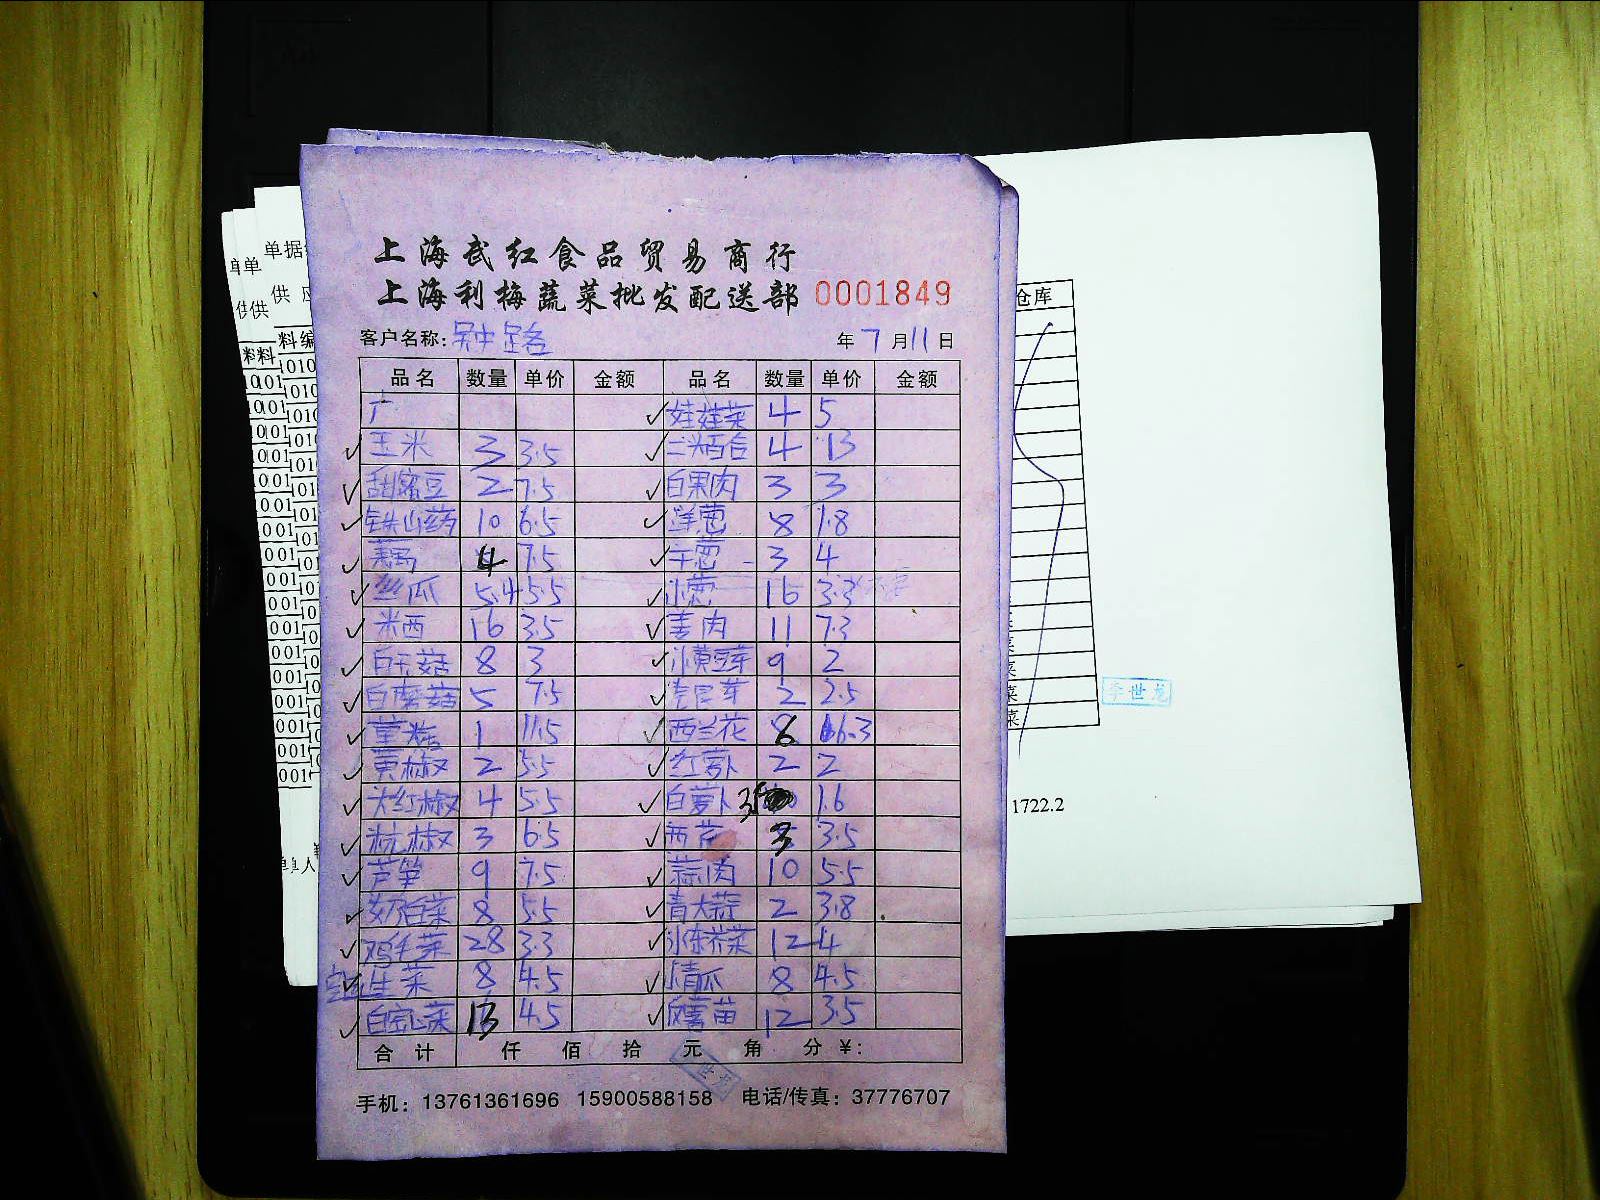 上海武红食品贸易商行
上海利梅蔬菜批发配送部 0001849
客户名称: 吴中路 年 7 月 11 日
品名 数量 单价 金额 品名 数量 单价 金额
娃娃菜 4 5
玉米 3 3.5 二头百合 4 13
甜蜜豆 2 7.5 白果肉 3 3
铁山药 10 6.5 洋葱 8 1.8
藕 4 7.5 干葱 3 4
丝瓜 5.4 5.5 小葱 16 3.3
米西 16 3.5 姜肉 11 7.3
白玉菇 8 3 小黄豆芽 9 2
白蘑菇 5 7.5 芽 2 2.5
1 11.5 西兰花 8 6.3
黄椒 2 5.5 红萝卜 2 2
大红椒 4 5.5 白萝卜 35 1.6
杭椒 3 6.5 西芹 3 3.5
芦笋 9 7.5 蒜肉 10 5.5
奶白菜 8 5.5 青大蒜 2 3.8
鸡毛菜 28 3.3 冰冻荠菜 12 4
生菜 8 4.5 青瓜 8 4.5
白空心菜 13 4.5 苗 12 3.5
合计 仟 佰 拾 元 角 分 ¥:
手机: 13761361696 15900588158 电话/传真: 37776707
单据
供应
料编
仓库
李世龙
1722.2